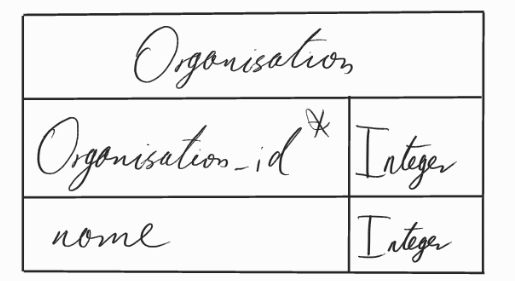 Organisation
Organisation_id* Integer
name Integer